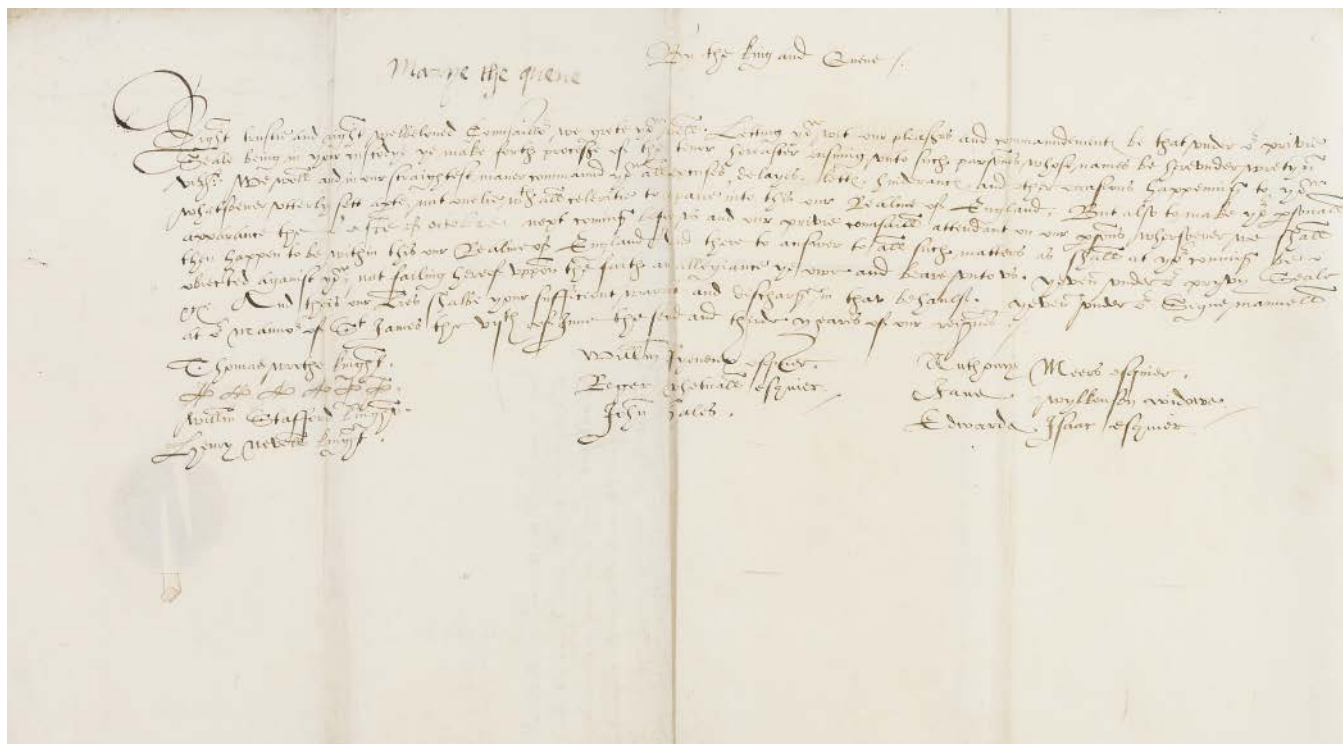 By the king and Quene /.
Marye the quene
Right trustie and right welbeloved Counsaillo^r, we grete yo^u well. Letting yo^u wit our pleas^r is and commaundement, be that vnder o^r privie
Seale being in your custodye ye make forth processe of the tenor hereafter ensuing vnto such parsonns, whose names be herevnder wretyn
We woll and in our straightest maner commaund yo^u all excuses, delayes, lette, hinderance, and other occasions happening to yo^u
whatsoever vtterly sett aparte, not onelie wth all celeritie to repaire into this our Realme of England, But also to make yo^r psonall
apparance the of octobre next coming before vs and our privie counsaill attendant on our psons, whersoever we shall
then happen to be within this our Realme of England and there to answer to all such matters as shall at yo^r coming be
obiected against yo^u, not failing hereof vppon the faith and allegiance ye owe and beare vnto vs. yeven vnder o^r pryvy Seale
etc. And theis our lres shalbe your sufficient warrnt and discharge in that behaulf. yeven vnder o^r Signe manuell
at o^r Manno^r of S^t James the vijth of June the second and thirde yeares of our reignes.
Thomas wrothe knight.
Willm Stafford knight.
Henry Nevell knight.
Willm esquier.
Roger whetnall esquier.
John Hales.
Anthonye Meers esquier.
Jane wylkinson widowe.
Edwarde Isaac esquier